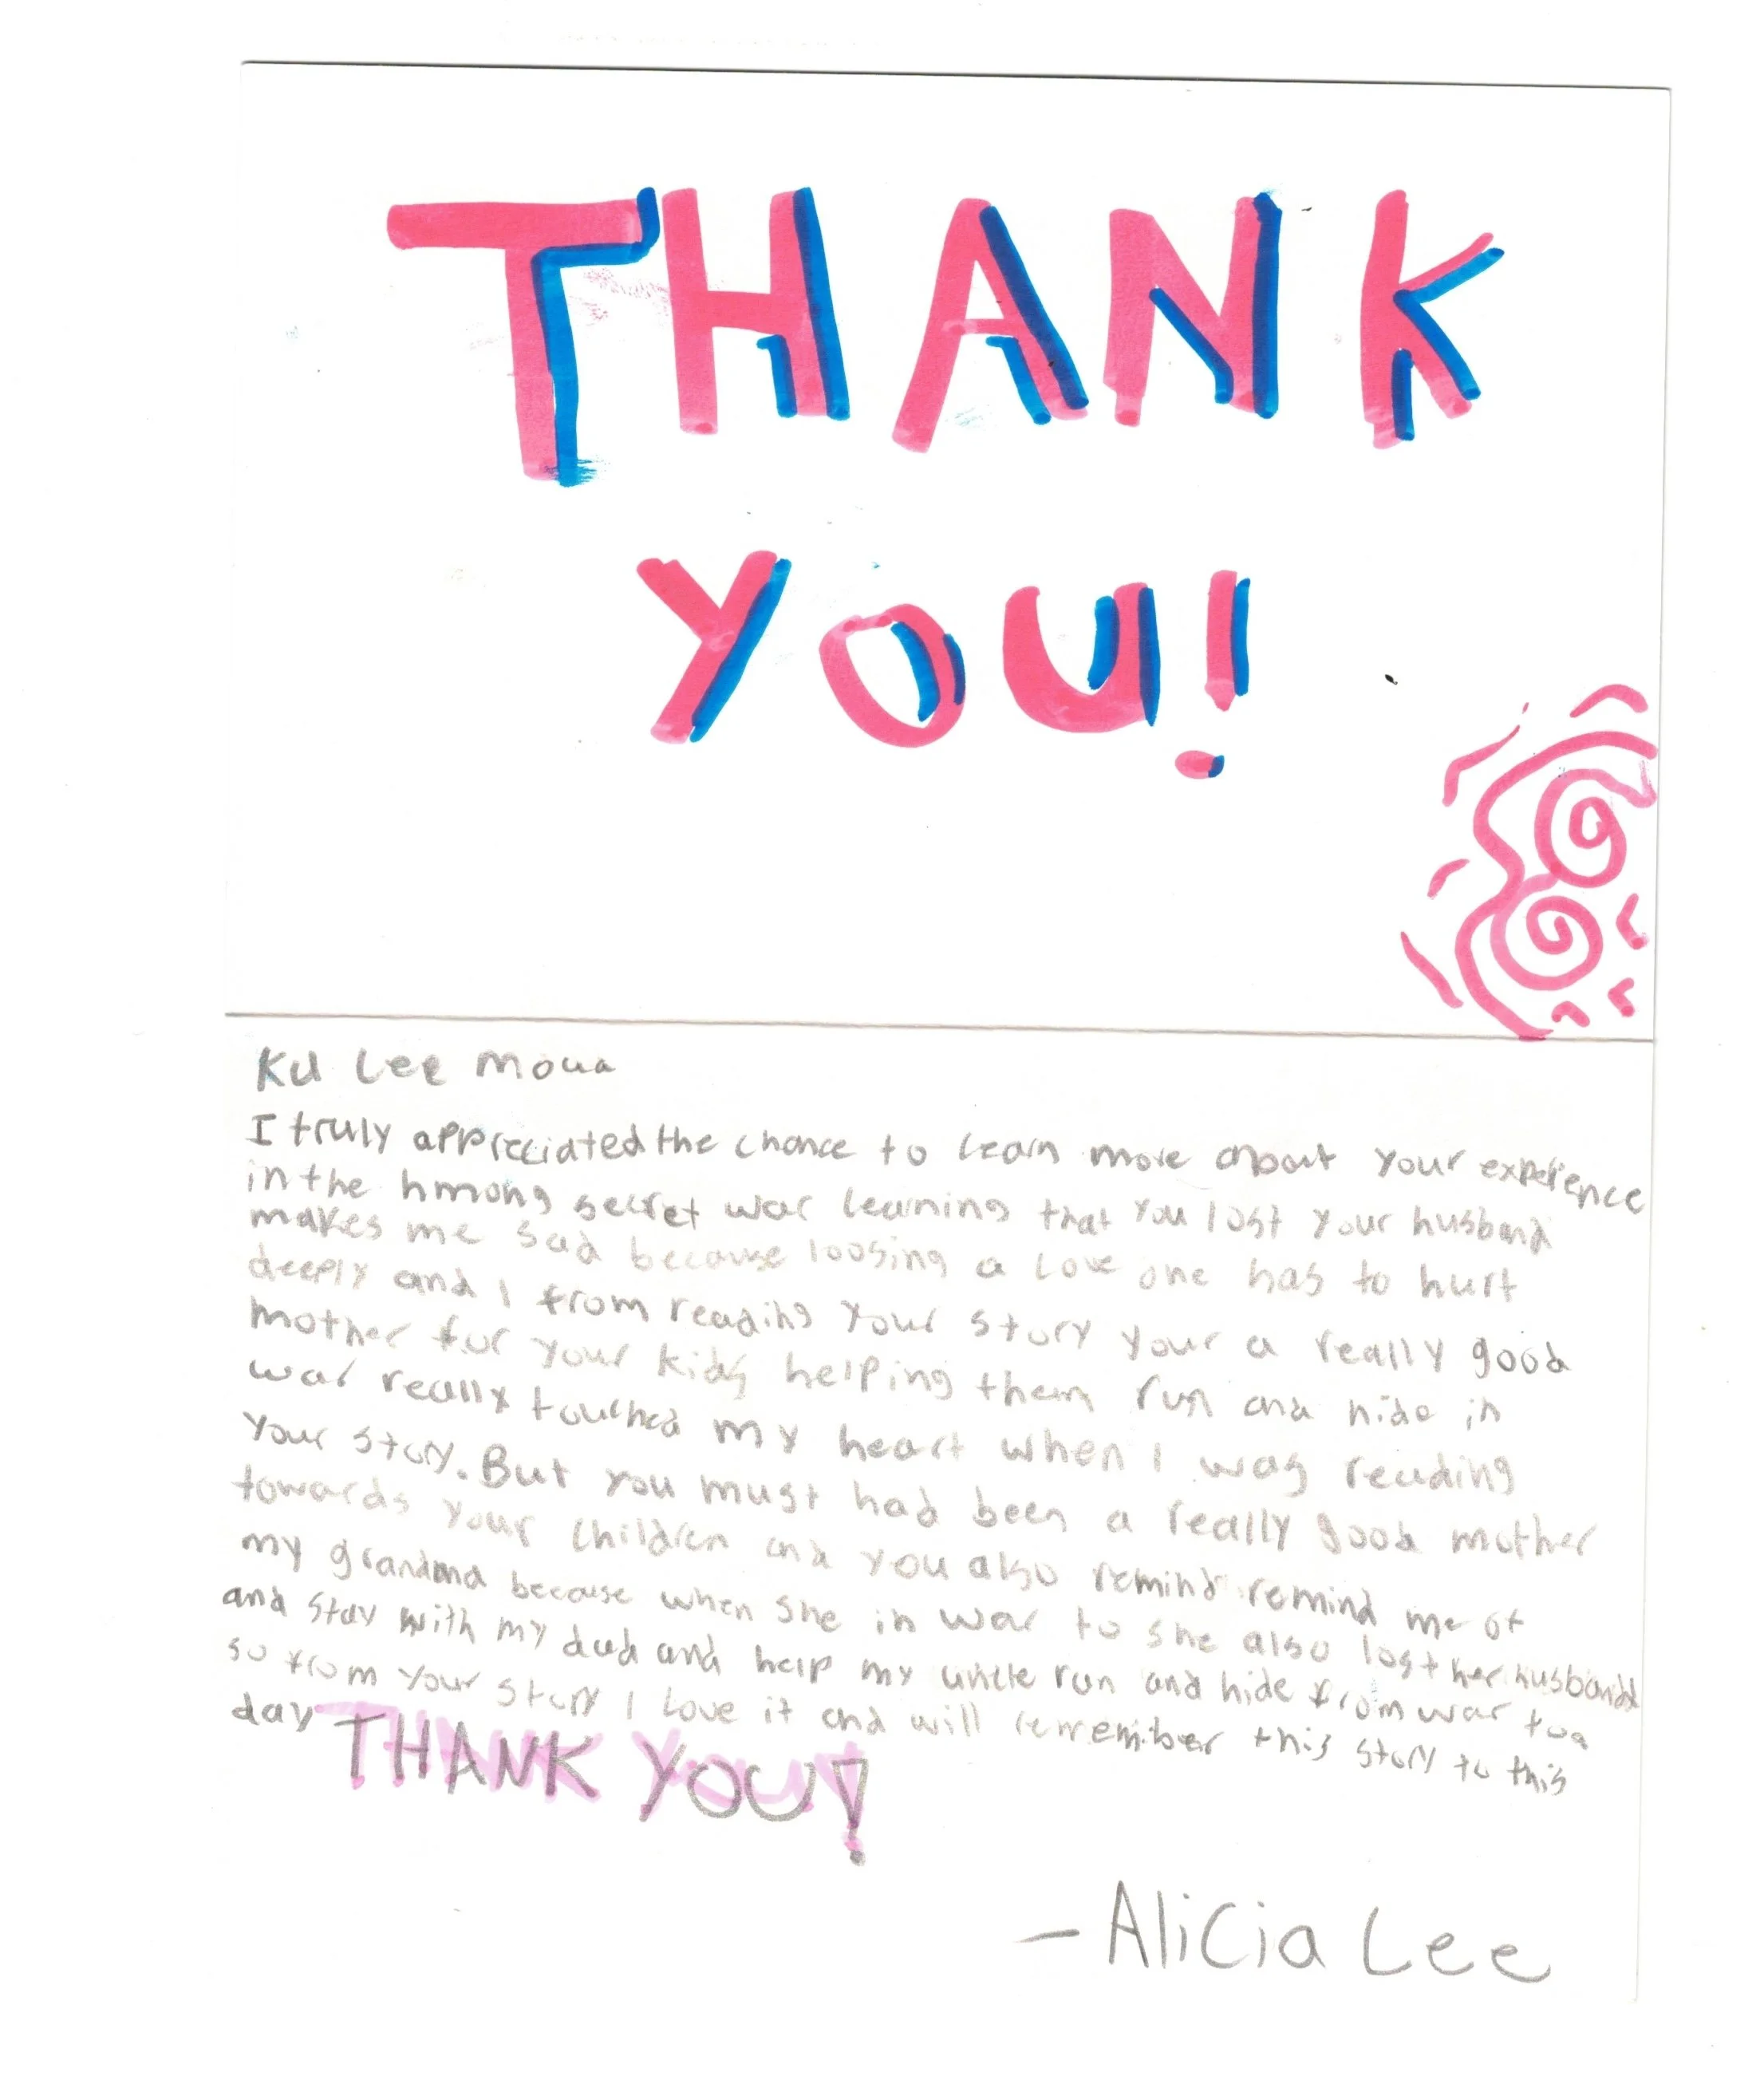 THANK
YOU!
Ku Lee Moua
I truly appreciated the chance to learn more about your experience
in the hmong secret war learning that you lost your husband
makes me sad because loosing a love one has to hurt
deeply and I from reading your story your a really good
mother for your kids helping them run and hide in
war really touched my heart when I was reading
your story. But you must had been a really good mother
towards your children and you also remind remind me of
my grandma because when she in war to she also lost her husband
and stay with my dad and help my uncle run and hide from war too
so from your story I love it and will remember this story to this
day THANK YOU!
- Alicia Lee